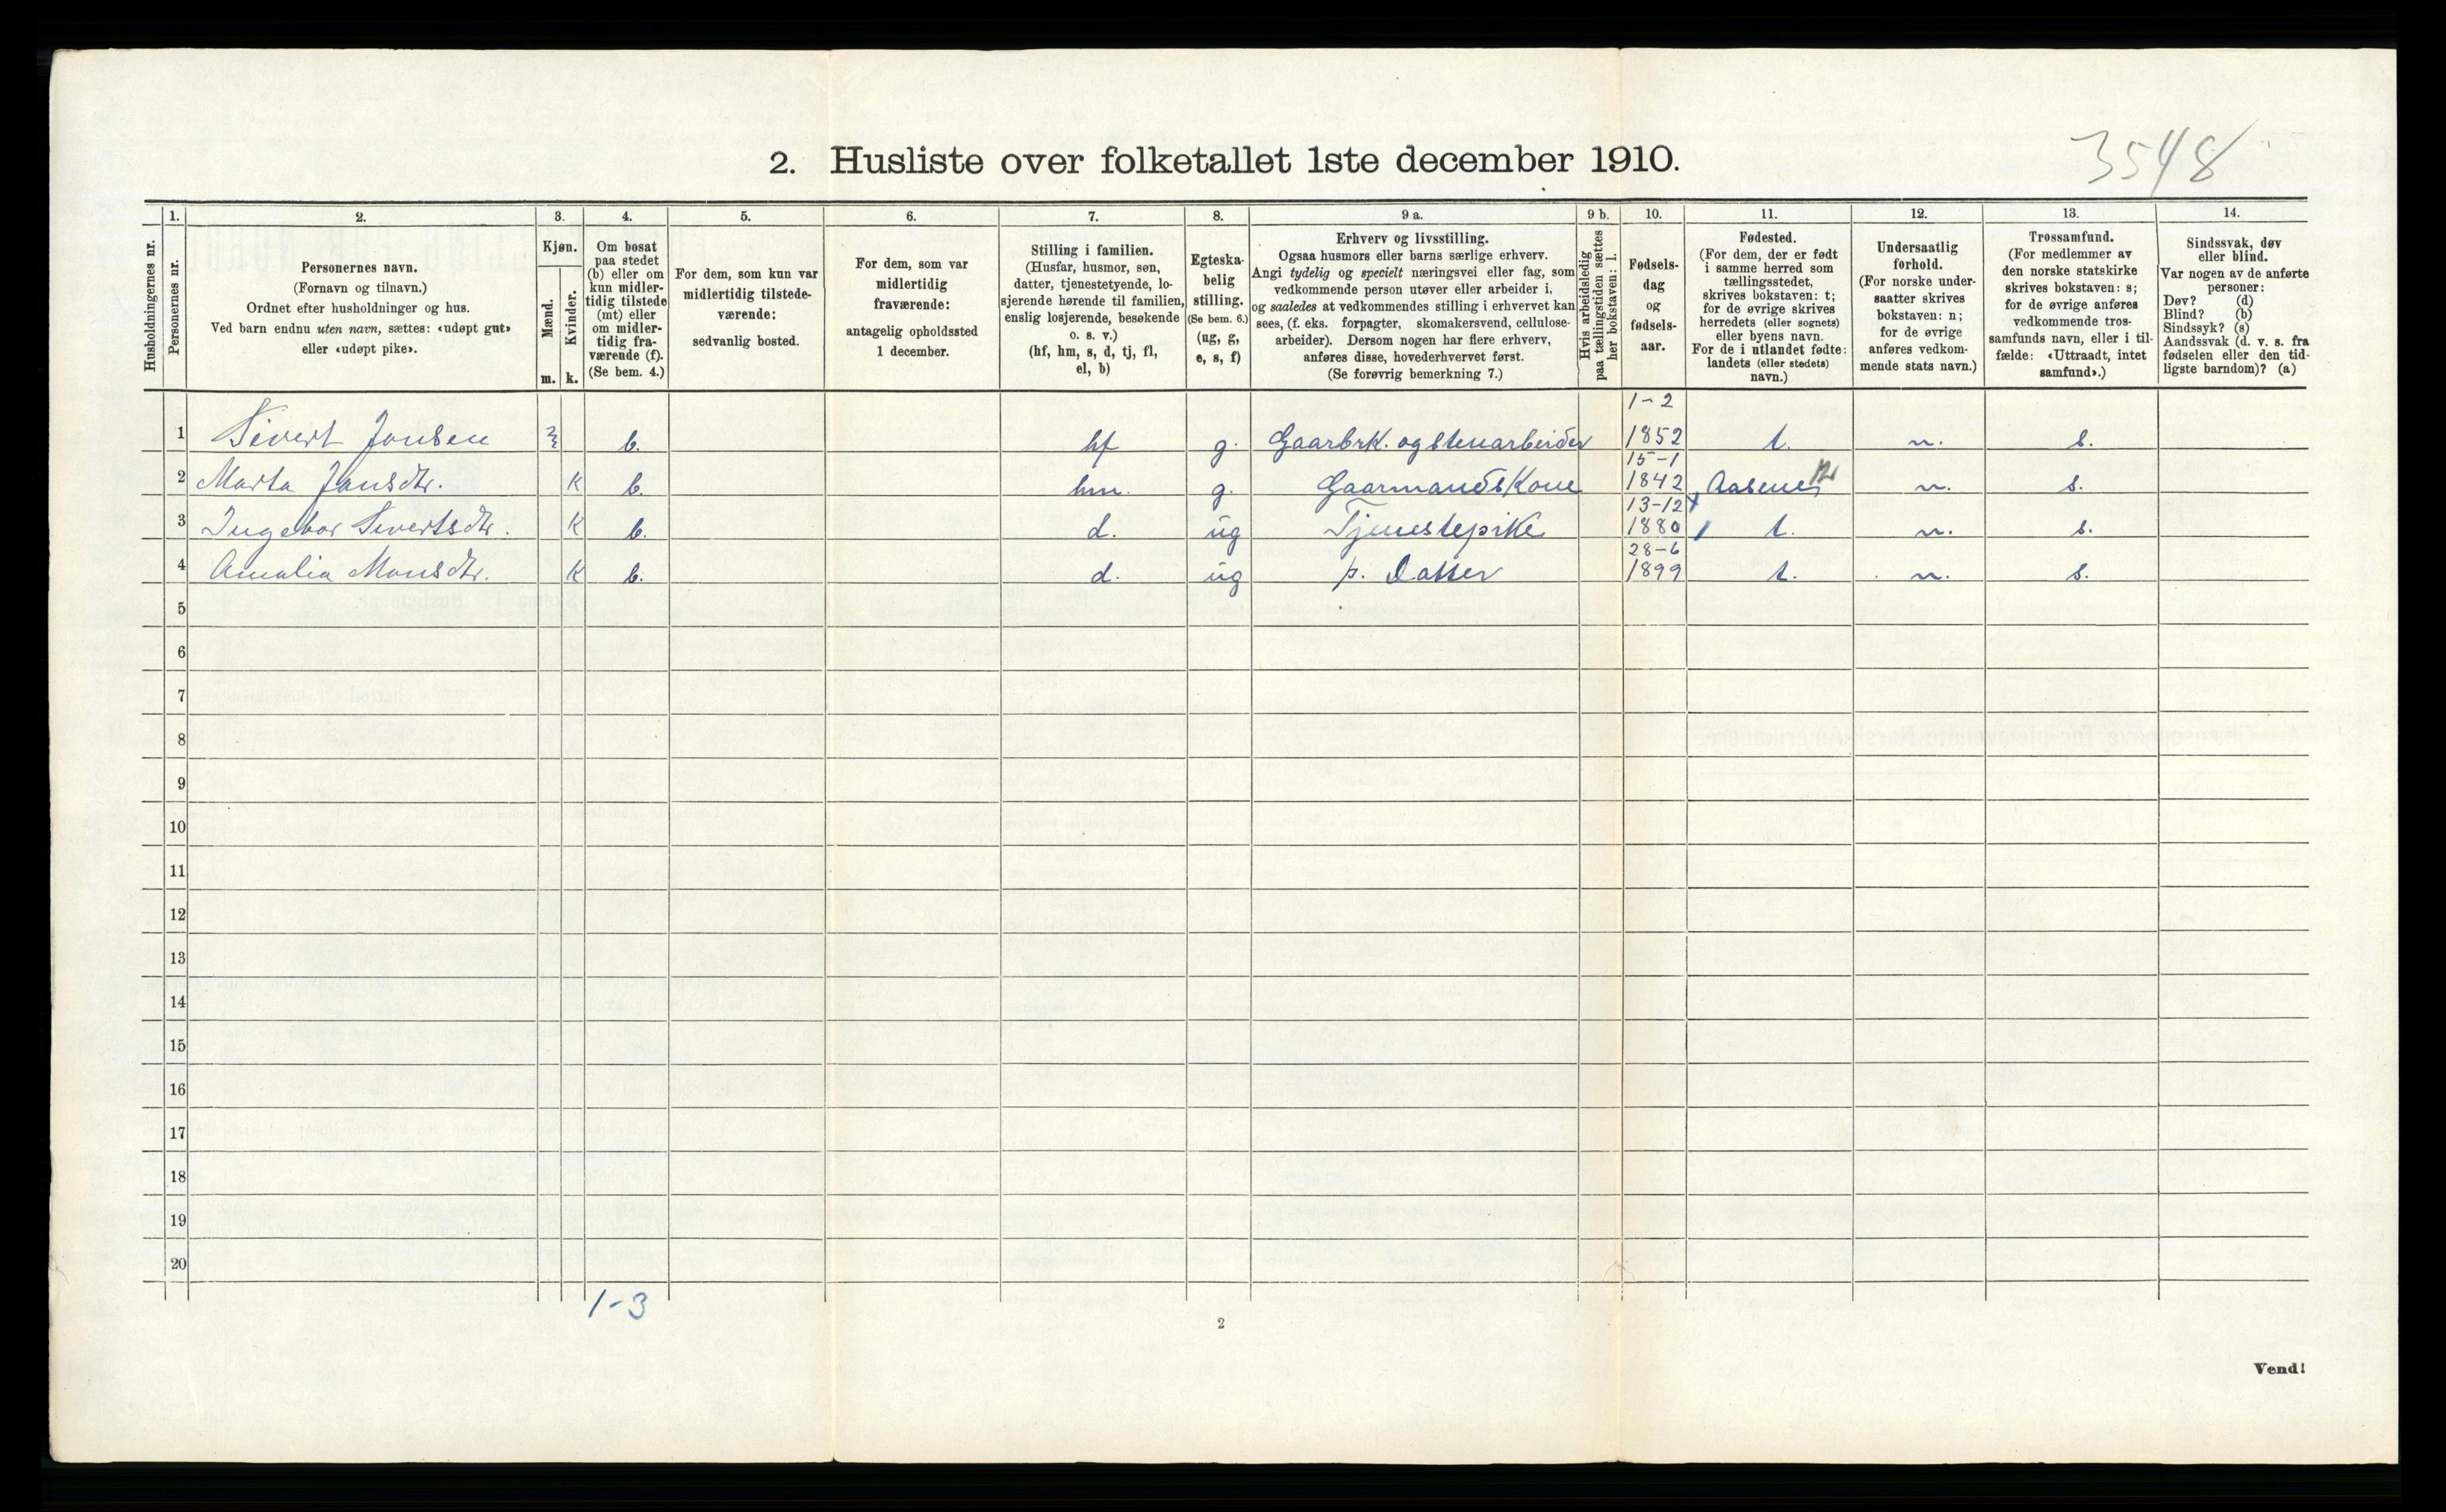 3548
2. Husliste over folketallet 1ste december 1910.
Husholdningernes nr.
1.
Personernes nr.
2.
Personernes navn.
(Fornavn og tilnavn.)
Ordnet efter husholdninger og hus.
Ved barn endnu uten navn, sættes: «udøpt gut»
eller «udøpt pike».
3.
Kjøn.
Mænd.
Kvinder.
m.
k.
4.
Om bosat
paa stedet
(b) eller om
kun midler-
tidig tilstede
(mt) eller
om midler-
tidig fra-
værende (f).
(Se bem. 4.)
5.
For dem, som kun var
midlertidig tilstede-
værende:
sedvanlig bosted.
6.
For dem, som var
midlertidig
fraværende:
antagelig opholdssted
1 december.
7.
Stilling i familien.
(Husfar, husmor, søn,
datter, tjenestetyende, lo-
sjerende hørende til familien,
enslig losjerende, besøkende
o. s. v.)
(hf, hm, s, d, tj, fl,
el, b)
8.
Egteska-
belig
stilling.
(Se bem. 6.)
(ug, g,
e, s, f)
9 a.
Erhverv og livsstilling.
Ogsaa husmors eller barns særlige erhverv.
Angi tydelig og specielt næringsvei eller fag, som
vedkommende person utøver eller arbeider i,
og saaledes at vedkommendes stilling i erhvervet kan
sees, (f. eks. forpagter, skomakersvend, cellulose-
arbeider). Dersom nogen har flere erhverv,
anføres disse, hovederhvervet først.
(Se forøvrig bemerkning 7.)
9 b.
Hvis arbeidsledig
paa tællingstiden sættes
her bokstaven: l.
10.
Fødsels-
dag
og
fødsels-
aar.
11.
Fødested.
(For dem, der er født
i samme herred som
tællingsstedet,
skrives bokstaven: t;
for de øvrige skrives
herredets (eller sognets)
eller byens navn.
For de i utlandet fødte:
landets (eller stedets)
navn.)
12.
Undersaatlig
forhold.
(For norske under-
saatter skrives
bokstaven: n;
for de øvrige
anføres vedkom-
mende stats navn.)
13.
Trossamfund.
(For medlemmer av
den norske statskirke
skrives bokstaven: s;
for de øvrige anføres
vedkommende tros-
samfunds navn, eller i til-
fælde: «Uttraadt, intet
samfund».)
14.
Sindssvak, døv
eller blind.
Var nogen av de anførte
personer:
Døv? (d)
Blind? (b)
Sindssyk? (s)
Aandssvak (d. v. s. fra
fødselen eller den tid-
ligste barndom)? (a)
1 Sivert Jonsen b. hf g. Gaarbrk. og Stenarbeider 1-2 1852 t. n. s.
2 Marta Jonsdtr. K b. hm. g. Gaarmands Kone 15-1 1842 Aasene 12 n. s.
3 Ingebor Sivertsdtr. K b. d. ug Tjenestepike 13-12 1880 t. n. s.
4 Amalia Monsdtr. K b. d. ug p. Datter 28-6 1899 t. n. s.
5
6
7
8
9
10
11
12
13
14
15
16
17
18
19
20
1-3
2
Vend!